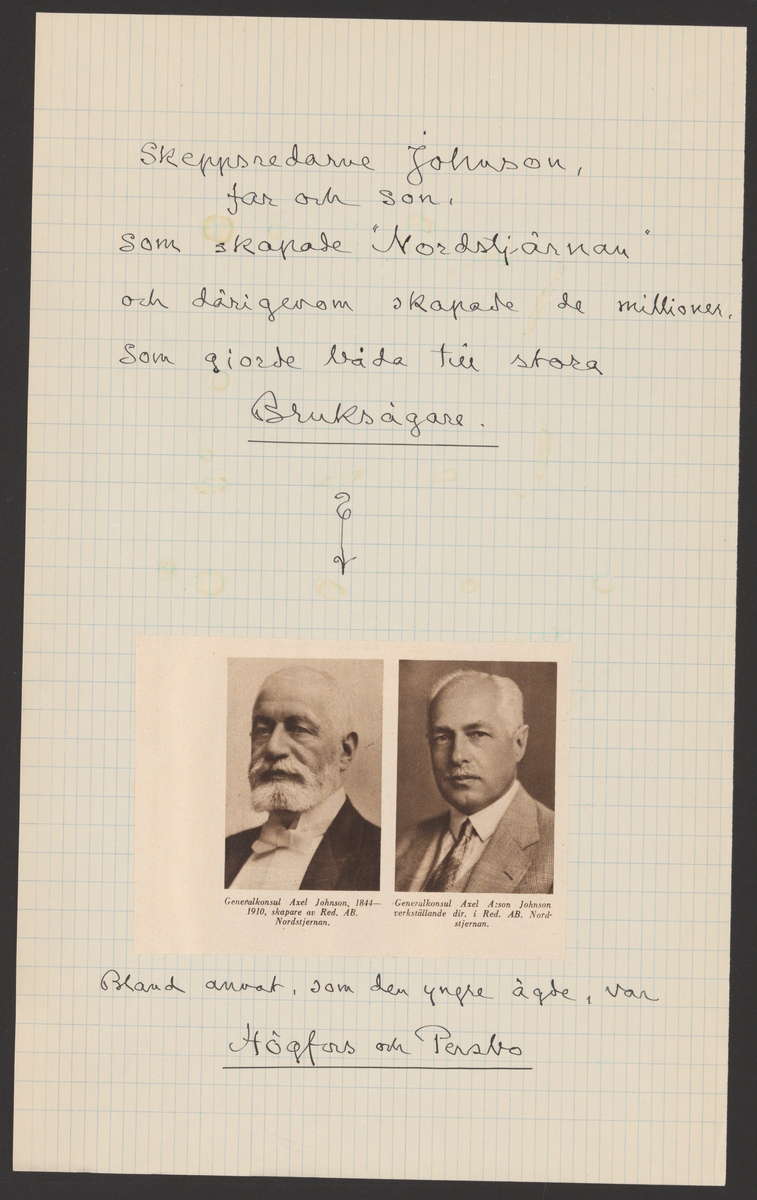 Skeppsredarne Johnson,
far och son,
som skapade "Nordstjärnan"
och därigenom skapade de millioner,
som gjorde båda till stora
Bruksägare.
Generalkonsul Axel Johnson, 1844—
1910, skapare av Red. AB.
Nordstjernan.
Generalkonsul Axel A:son Johnson
verkställande dir. i Red. AB. Nord-
stjernan.
Bland annat, som den yngre ägde, var
Högfors och Persbo